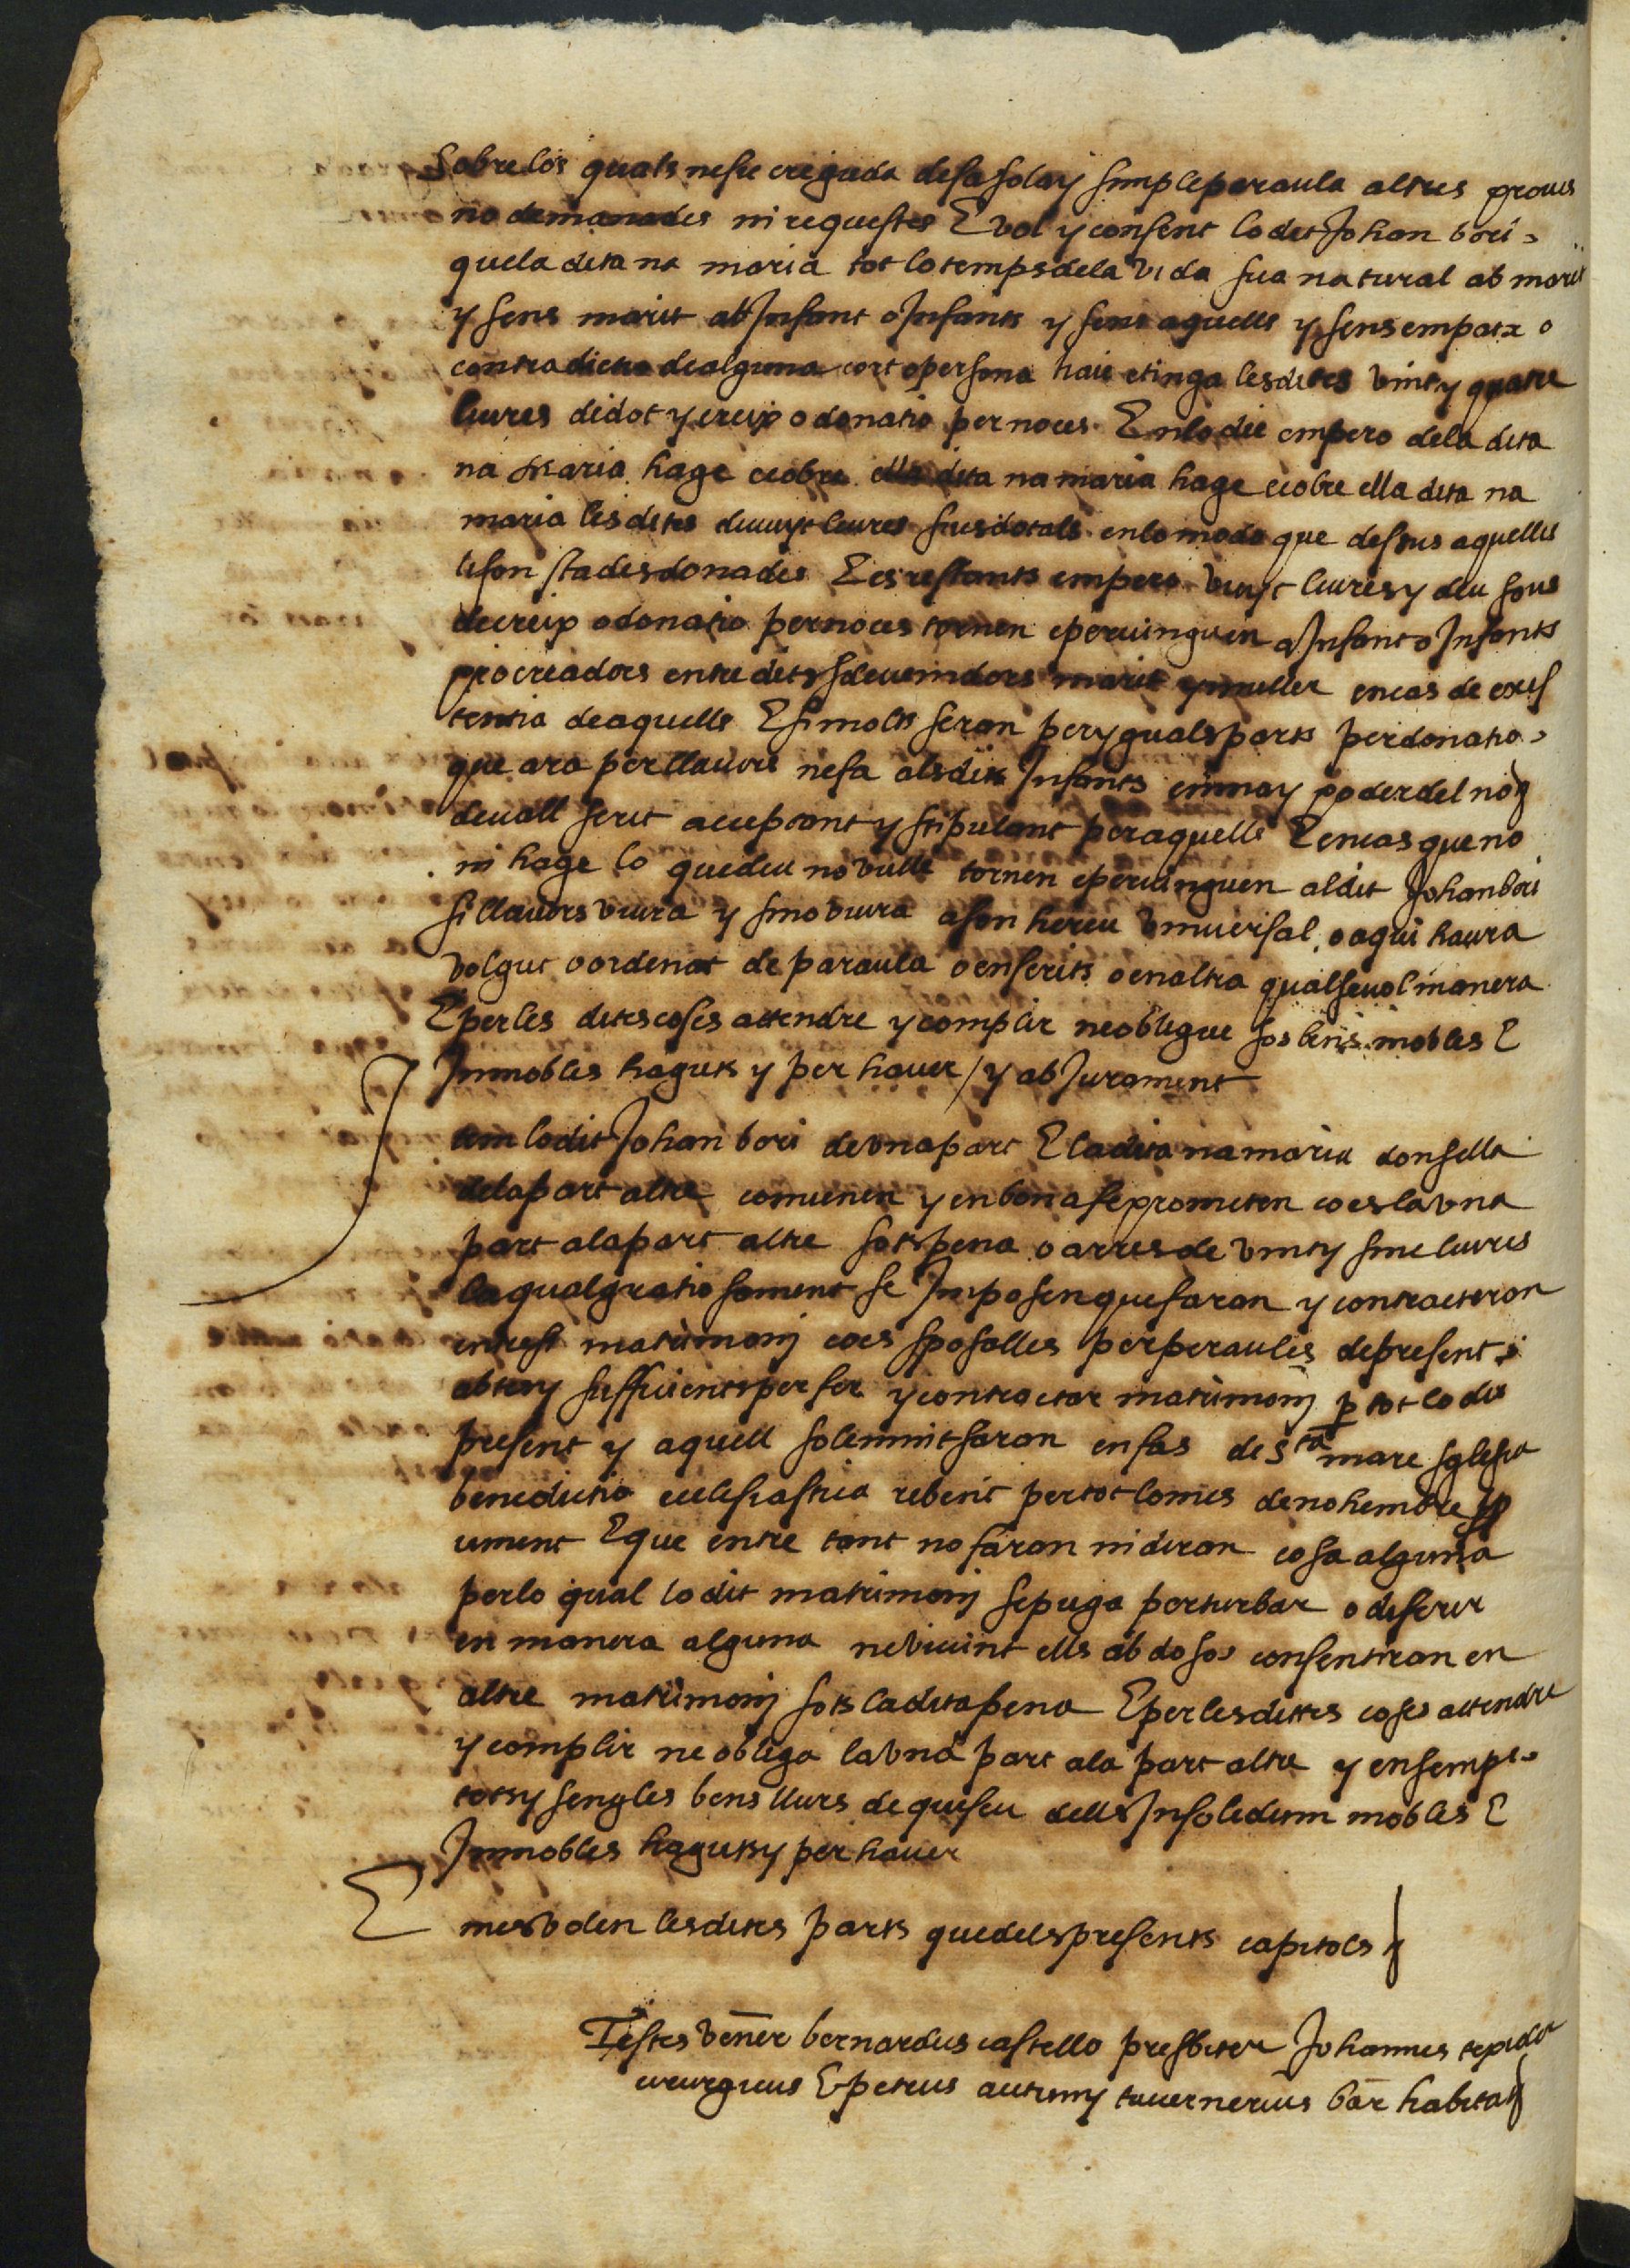 Sobre los quals nesie cregada de sa sola y simple peraula altres proues
no demanades ni requestes E vol y consent lo dit Johan bori
que la dita na maria tot lo temps dela vida sua natural ab marit
y sens marit ab Infant o Infants y sens aquells y sens empatx o
contradictio de alguna cort o persona haie e tinga les dites vint y quatre
liures didot y creix o donatio per noces. En lo die empero dela dita
na Maria hage e cobre ella dita na maria hage e cobre ella dita na
maria les dites liures sues dotals en lo modo que dessus aquelles
li son stades donades E es restants empero vuyt liures y deu sous
de creix o donatio per noces tornen e peruinguen a Infant o Infants
procreadors entre dits sdeuenidors marit y muller en cas de exis
tentia de aquells E si molts seran per yguals parts per donatio
que ara per llauors ne fa als dits Infants en ma y poder del noṯ
deuall scrit acceptant y stipulant per aquells E en cas que no
ni hage lo que deu no vulle tornen e peruinguen al dit Johan bori
si llauors viura y si no viura a son hereu vniuersal o a qui haura
volgut o ordenat de paraula o en scrits o en altra qualseuol manera
E per les dites coses attendre y complir ne obligue sos bens mobles E
Immobles haguts y per hauer / y ab Jurament
Item lo dit Johan bori de vna part E la dita na maria donsella
dela part altra conuenen y en bona fe prometen co es la vna
part ala part altre sots pena o arres de vint y sinc liures
la qual gratiosament se Imposen que faran y contracteran
entresi matrimonj coes sposalles per peraules de present
abtes y sufficients per fer y contractar matrimonj p tot lo die
present y aquell solemnitsaran en fas de sta mare sglesia
benedictio ecclesiastica rebent per tot lo mes de nohembre
uinent E que entre tant no faran ni diran cosa alguna
per lo qual lo dit matrimonj se puga perturbar o diferir
en manera alguna ne viuint ells abdosos consentiran en
altre matrimonj sots la dita pena E per les dittes coses attendre
y complir ne obliga la vna part ala part altra y ensemps
tots y sengles bens llurs de quiscu dells Insolidum mobles E
Immobles haguts y per hauer
E mes volen les dites parts que dels presents capitols
Testes vener bernardus castello presbiter Johannes
cirurgicus E petrus antunj tauernerius bar habitat